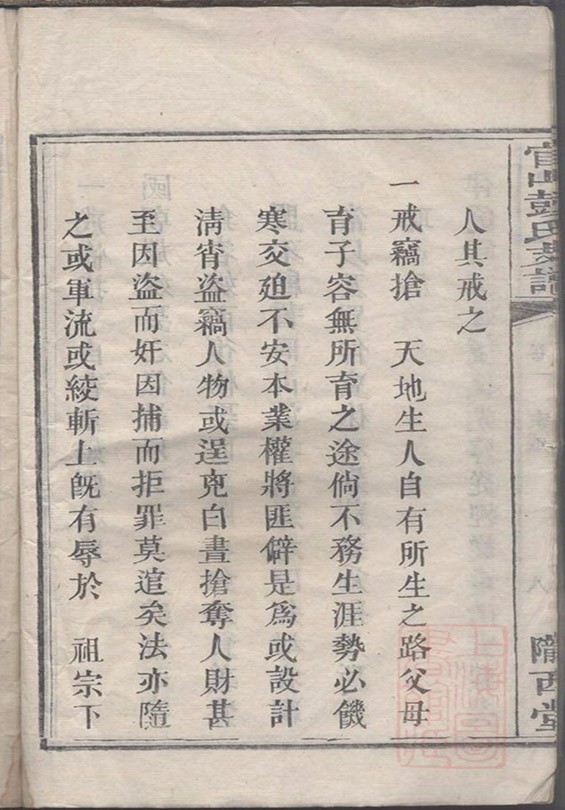 人其戒之
一戒竊搶 天地生人自有所生之路父母
育子容無所育之途倘不務生涯勢必饑
寒交迫不安本業權將匪僻是爲或設計
淸宵盜竊人物或逞兇白晝搶奪人財甚
至因盜而奸因捕而拒罪莫逭矣法亦隨
之或軍流或絞斬上旣有辱於 祖宗下
彭氏
隴西堂